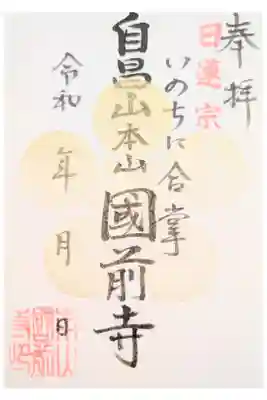 奉拝
日蓮宗
いのちに合掌
自昌山本山國前寺
令和 年 月 日